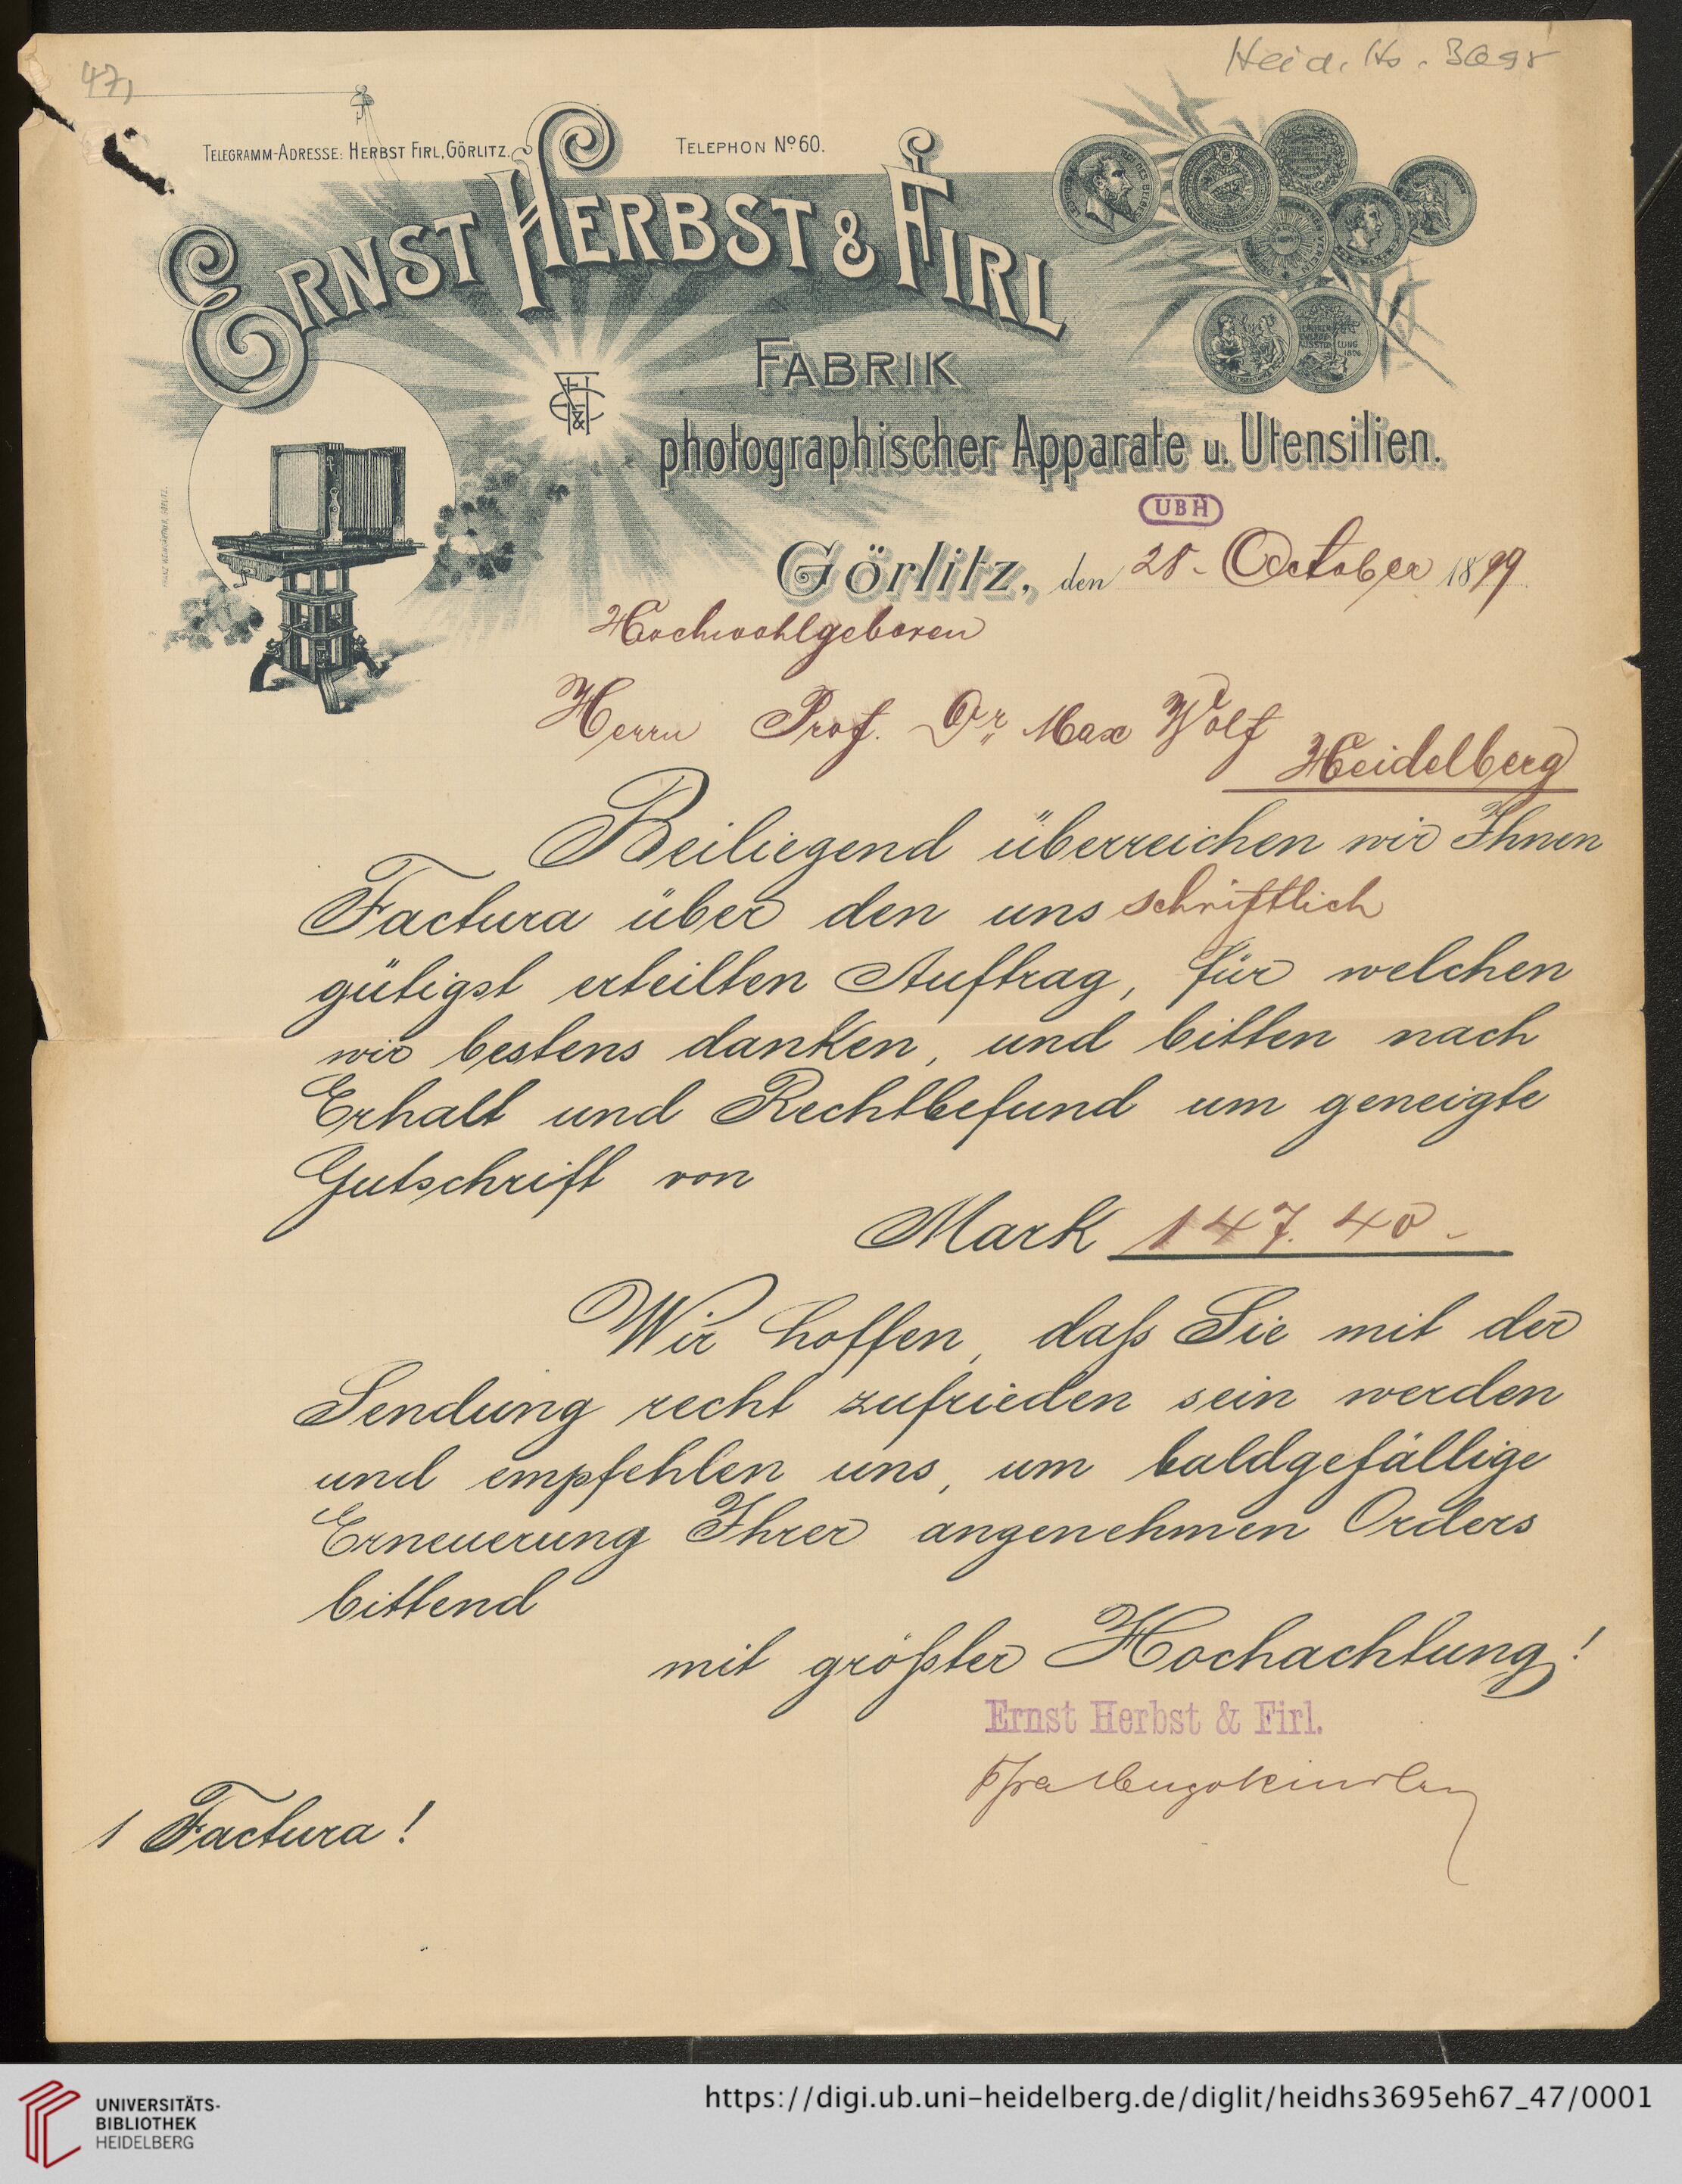 47,
Heid. Hs. 3695
TELEGRAMM-ADRESSE: HERBST FIRL, GÖRLITZ.
TELEPHON No 60.
ERNST HERBST & FIRL
FABRIK
photographischer Apparate u. Utensilien.
UBH
Görlitz, den 28. October 1899
Hochwohlgeboren
Herrn Prof. Dr. Max Wolf
Heidelberg
Beiliegend überreichen wir Ihnen
Factura über den uns schriftlich
gütigst erteilten Auftrag, für welchen
wir bestens danken, und bitten nach
Erhalt und Rechtbefund um geneigte
Gutschrift von
Mark 147.40.-
Wir hoffen, daß Sie mit der
Sendung recht zufrieden sein werden
und empfehlen uns, um baldgefällige
Erneuerung Ihrer angenehmen Orders
bittend
mit größter Hochachtung!
Ernst Herbst & Firl.
1 Factura!
UNIVERSITÄTS-
BIBLIOTHEK
HEIDELBERG
https://digi.ub.uni-heidelberg.de/diglit/heidhs3695eh67_47/0001